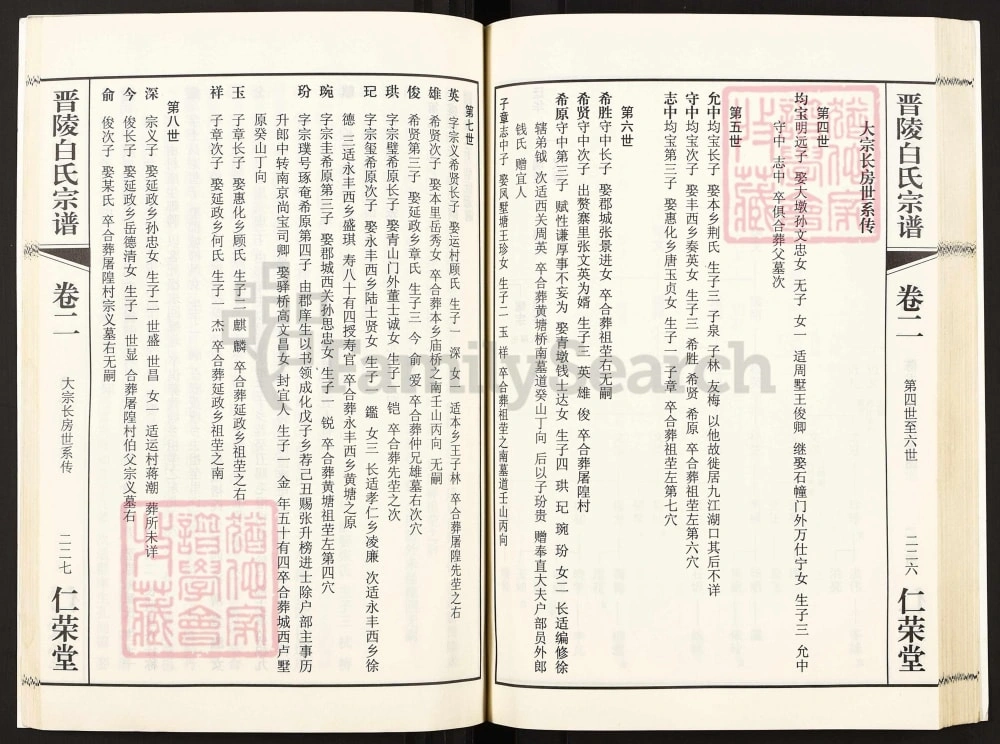 晋陵白氏宗谱
卷二
第四世至六世
二二六
仁荣堂
大宗长房世系传
第四世
均宝明远子 娶大墩孙文忠女 无子 女一 适周墅王俊卿 继娶石幢门外万仕宁女 生子三 允中
守中 志中 卒俱合葬父墓次
第五世
允中均宝长子 娶本乡荆氏 生子三 子泉 子林 友梅 以他故徙居九江湖口其后不详
守中均宝次子 娶丰西乡奏英女 生子三 希胜 希贤 希原 卒合葬祖茔左第六穴
志中均宝第三子 娶惠化乡唐玉贞女 生子一 子章 卒合葬祖茔左第七穴
第六世
希胜守中长子 娶郡城张景进女 卒合葬祖茔右无嗣
希贤守中次子 出赘寨里张文英为婿 生子三 英 雄 俊 卒合葬屠隍村
希原守中第三子 赋性谦厚事不妄为 娶青墩钱士达女 生子四 珙 玘 琬 玢 女二 长适编修徐
辖弟钺 次适西关周英 卒合葬黄塘桥南墓道癸山丁向 后以子玢贵 赠奉直大夫户部员外郎
钱氏 赠宜人
子章志中子 娶凤墅塘王珍女 生子二 玉 祥 卒合葬祖茔之南墓道壬山丙向
第七世
英 字宗义希贤长子 娶运村顾氏 生子一 深 女一 适本乡王子林 卒合葬屠隍先茔之右
雄 希贤次子 娶本里岳秀女 卒合葬本乡庙桥之南壬山丙向 无嗣
俊 希贤第三子 娶延政乡章氏 生子三 今 俞 爱 卒合葬仲兄雄墓右次穴
珙 字宗璧希原长子 娶青山门外董士诚女 生子一 铠 卒合葬先茔之次
玘 字宗玺希原次子 娶永丰西乡陆士贤女 生子一 鑑 女三 长适孝仁乡凌廉 次适永丰西乡徐
德 三适永丰西乡盛琪 寿八十有四授寿官 卒合葬永丰西乡黄塘之原
琬 字宗圭希原第三子 娶郡城西关孙思忠女 生子一 锐 卒合葬黄塘祖茔左第四穴
玢 字宗璞号琢奄希原第四子 由郡庠生以书领成化戊子乡荐己丑赐张升榜进士除户部主事历
升郎中转南京尚宝司卿 娶驿桥高文昌女 封宜人 生子一 金 年五十有四卒合葬城西卢墅
原癸山丁向
玉 子章长子 娶惠化乡顾氏 生子二 麒 麟 卒合葬延政乡祖茔之右
祥 子章次子 娶延政乡何氏 生子一 杰 卒合葬延政乡祖茔之南
第八世
深 宗义子 娶延政乡孙忠女 生子二 世盛 世昌 女一 适运村蒋潮 葬所未详
今 俊长子 娶延政乡岳德清女 生子一 世显 合葬屠隍村伯父宗义墓右
俞 俊次子 娶某氏 卒合葬屠隍村宗义墓右无嗣
晋陵白氏宗谱
卷二
大宗长房世系传
二二七
仁荣堂
FamilySearch